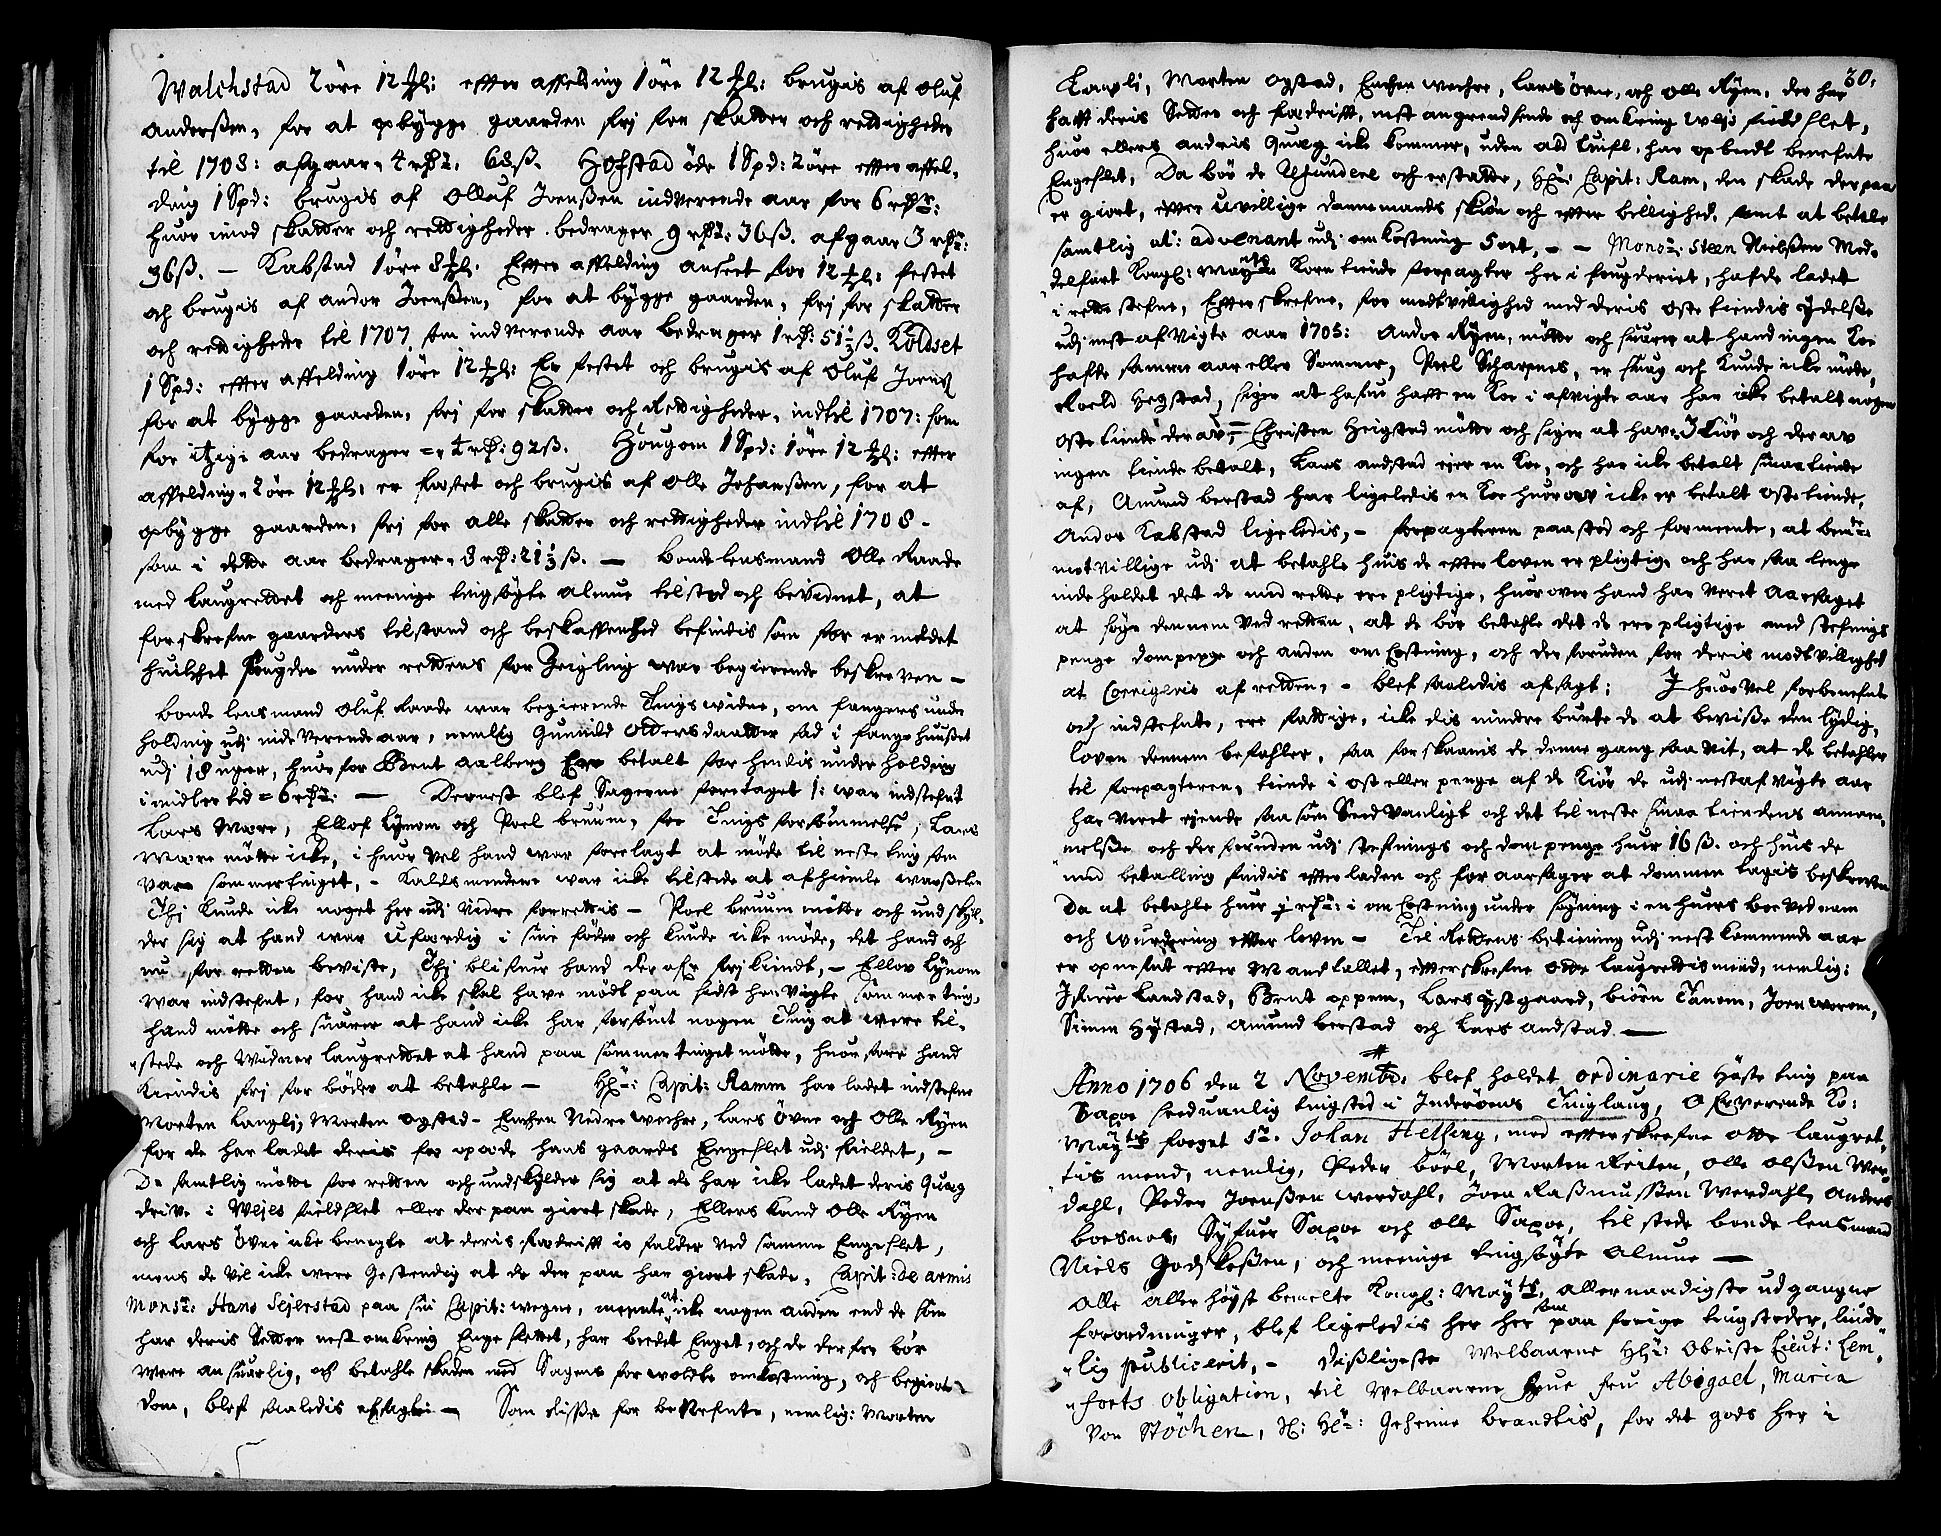 Walchstad 2 öre 12 : efter affelding 1 öre 12 : brugis af oluf
Anderßen, for at opbÿgge gaarden frj for skatter och rettigheder
til 1708: afgaar, 4 68ß. Hofstad öde 1 Spd: 2 öre efter affel-
ding 1 Spd: brugis af Olluf Joenßen indverende aar for 6
huor imod skatter och rettigheder bedrager 9 36ß. afgaar 3
36ß. – Kabstad 1 öre 8 : Efter affelding ansect for 12 : festet
och brugis af Andor Joenßen, for at bÿgge gaarden, frj for skatter
och rettigheder til 1707 som indverende aar bedrager 1 51 ß. Koldset
1 Spd: efter affelding 1 öre 12 : Er festet och brugis af Oluf
for at bÿgge gaarden, frj for skatter och Rettigheder, indtil 1707: som
for aar bedrager = 92ß. Hougom 1 Spd: 1 öre 12 : efter
affelding 2 öre 12 : er festet och brugis af Olle Johanßen, for at
opbÿgge gaarden, frj for alle skatter och rettigheder indtil 1708 –
som i dette aar bedrager 3 21 ß. – Bondelensmand Olle Raade
med laugrettet och meenige tingsögte almue tilstod och bevidnet, at
forskrefne gaarders tilstand och beskaffenhed befindis som for er meldet
huilchet fougden under rettens forzeigling war begierende beskreven –
Bonde lensmand Oluf Raade war begierende Tingswidne, om fangers under
holdnig udj inde verende aar, nemlig Gunnild Ottersdaatter sad i fange huußet
udj 18 uger, huor for Bent Aalberg betalt for hendis under holding
imidler tid = 6 – Dernest blef Sagerne foretaget 1: war indstefnt
Lars Ware, Ellof Lÿnom och Poel bruum, for Tings forsömmelse, Lars
Ware mötte icke, i huor vel hand war forelagt at möde til neste ting som
var sommertinget, – Kaldsmendene war icke tilstede at afhiemle warßelen
Thj kunde icke noget her udj Videre forrettis – Poel bruum mötte och undskÿl-
der sig at hand war ufærdig i sine föder och kunde icke möde, det hand och
nu for retten beviste, Thj blifuer hand der efter frj kiendt, – Ellov Lÿnom
war indstefnt, for hand icke skal have mödt paa sidst henvigte sommerting,
hand mötte och suarer at hand icke har forsömt nogen Ting at were til-
stede och Widner laugrettet at hand paa sommertinget mötte, huor fore hand
kiendis frj for böder at betahle – Capit: Ramm har ladet indstefne
Morten Langlj, Morten Ogstad – Enchen Nedre wechre, Lars Övne och Olle Rÿen
for de har ladet deris opæde hans gaards Engeslet udj fieldet, –
De samtlig mötte for retten och undskÿlder sig at de har icke ladet deris quæg
drive i Wejes fieldslet eller der paa giort skade, Ellers kand Olle Rÿen
och Lars Övne icke benegte at deris fædrift io falder ved samme Engeslet,
mens de vil icke were gestendig at de der paa har giort skade, Capit: de armis
Mons: Hans Sejerstad paa sin Capit: wegne, mente at icke nogen anden end de som
har deris Setter nest omkring Enge slettet, har beedet Enget, och de derfor bör
Were ansuarlig, och betahle skaden med Sagens forvoldte omkostning, och begierte
dom, blef saaledis afsagt – Som disse for bemelte, nemlig: Morten
30.
Langlj, Morten Ogstad, Enchen wechre, Lars övne, och Olle Rÿen, der har
hafft deris Setter och fædrifft, nest angrendsende och omkring Weje fieldslet,
huor ellers andris quæg icke kommer, uden all tuifl, har opbeedt benefnte
Engeslet, Da bör de och erstatte, Capit: Ram, den skade der paa
er giort, efter uvillige dannemands skiön och efter billighed, samt at betale
samtlig at: advenant udj omkostning 5 ort, – – Mons: Steen Nielßen Med-
delfart Kongl: Maÿts Korn tiende forpagter her i fougderiet, hafde ladet
i rette stefne, Efterskrefne, for modtvillighed med deris oste tiendis Ydelße
udj nest afvigte aar 1705: Andor Rÿen, mötte och suarer at hand ingen Koe
hafde samme aar eller Sommer, Poel Scharpnes, er suag och kunde icke möde,
Roeld Hegstad, siger at hafue hafft en Koe i afvigte aar har icke betalt nogen
oste tiende der av, – Christen Heigstad mötte och siger at have 3 kiör och der av
ingen tiende betalt, Lars Andstad ejer en Koe, och har icke betalt smaa tiende
af, Amund berstad har ligeledis en Koe huor av icke er betalt oste tiende,
Andor Kabstad ligeledis, – forpagteren paastod och formeente, at
motvillige udj at betahle huis de efter loven er pligtige och har saa lenge
inde holdet det de med rette ere pligtige, huorover hand har veret aarsaget
at söge dennem Ved retten, at de bör betahle det de ere pligtige med stefnings
penge dompenge och anden omkostning, och der foruden for deris modtvillighed
at Corrigeris af retten, – blef saaledis afsagt: I huor vel forbenefnte
och indstefnte, ere fattige, icke dis mindre burte de at beviße sen lÿdig,
Loven dennem befahler, saa forskaanis de denne gang saa vit, at de betahler
til forpagteren, tiende i ost eller penge af de kiör de udj nest afvigte aar
har veret ejende saa som Sedvanligt och det til neste smaa tiendens annam-
melße och der foruden udj stefnings och dompenge huer 16 ß. och huis de
med betalling findis efterladen och foraarsager at dommen tagis beskreven
Da at betahle huer 1 : i omkostning under söyning i en huers boe ved nam
och wurdering efter loven – Til Rettens betiening udj nest kommende aar
er opnefnt efter Mandtallet, efterskrefne otte laugrettismend, nemlig:
Landstad, Bent oppem, Lars ÿstgaard, biörn Tanem, Joen worem,
Simen Hÿstad, Amund berstad och Lars Andstad –
Anno 1706 den 2 Novembr. blef holdet ordinarie Höste ting paa
Saxoe sedvanlig tingsted i Inderöens Tinglaug, Oververende Ko:
Maÿts foeget Sr. Johan Helsing, med efterskrefne otte laugret-
tis mend, nemlig, Peder böel, Morten Reiten, Olle Olßen Wer-
dahl, Peder Joenßen werdahl, Joen Raßmusßen Werdahl, Anders
boesnes Sÿfuer Saxoe och Olle Saxoe, til stede bonde lensmand
Niels Godskeßen, och meenige tingsögte Almue –
Alle Aller höÿst bemelte Kongl: Maÿts, allernaadigste udgangne
forordninger, blef ligeledis her som paa forige tingsteder, tiude-
lig publicerit, – disligeste Welbaarne Obriste Lieut: Lem-
forts obligation, til Welbaarne frue fru Abigael, Maria
von Stöchen, Geheime Brandtis, for det gods her i